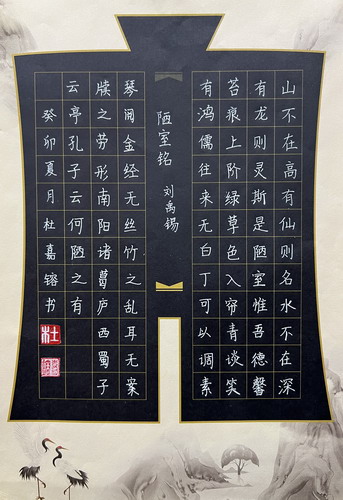 山不在高有仙则名水不在深
有龙则灵斯是陋室惟吾德馨
苔痕上阶绿草色入帘青谈笑
有鸿儒往来无白丁可以调素
陋室铭
刘禹锡
琴阅金经无丝竹之乱耳无案
牍之劳形南阳诸葛庐西蜀子
云亭孔子云何陋之有
癸卯夏月杜嘉镕书
杜